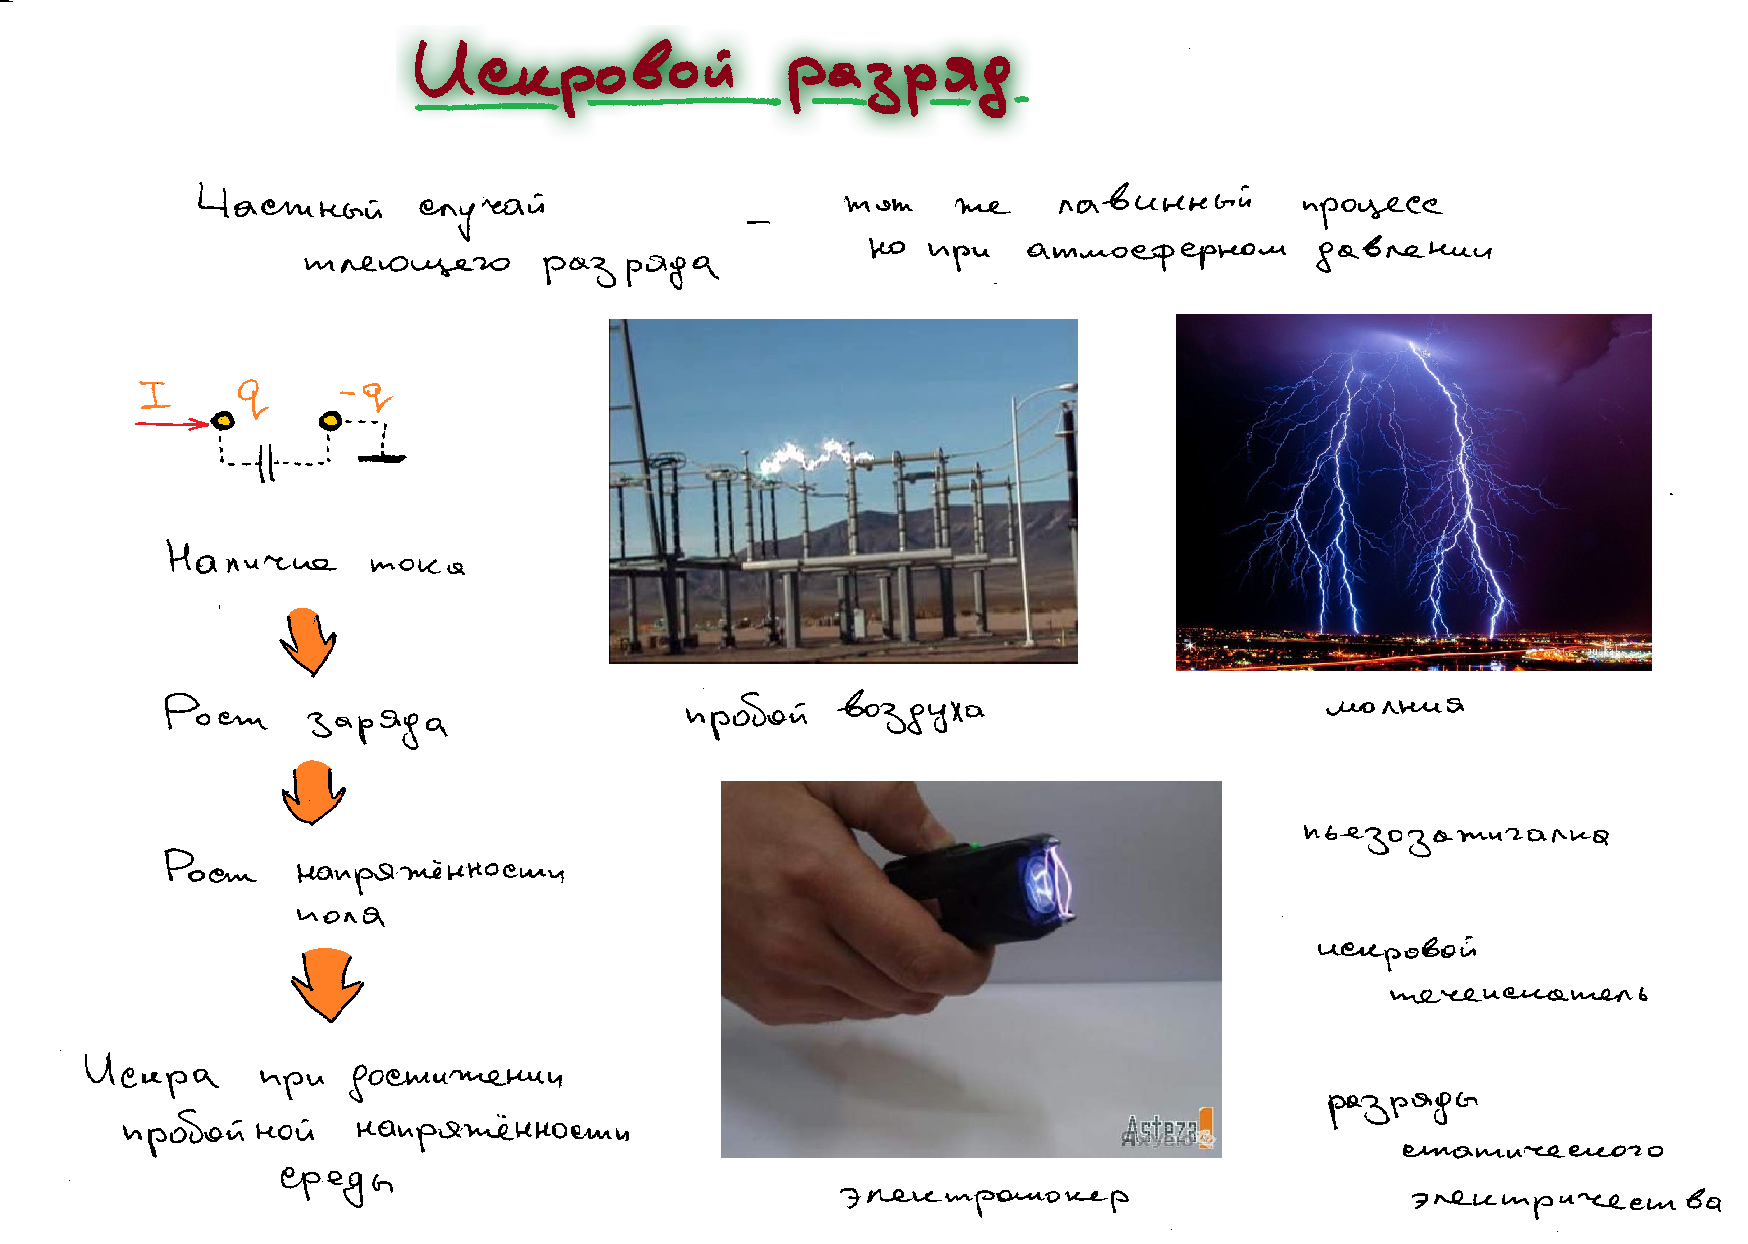 Искровой разряд
Частный случай
тлеющего разряда
– тот же лавинный процесс
но при атмосферном давлении
I q -q
Наличие тока
Рост заряда
Рост напряжённости
поля
Искра при достижении
пробойной напряжённости
среды
пробой воздуха
молния
Asteza
электрошокер
пьезозажигалка
искровой
течеискатель
разряды
статического
электричества